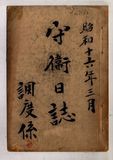 昭和十六年三月
守衛日誌
調度係